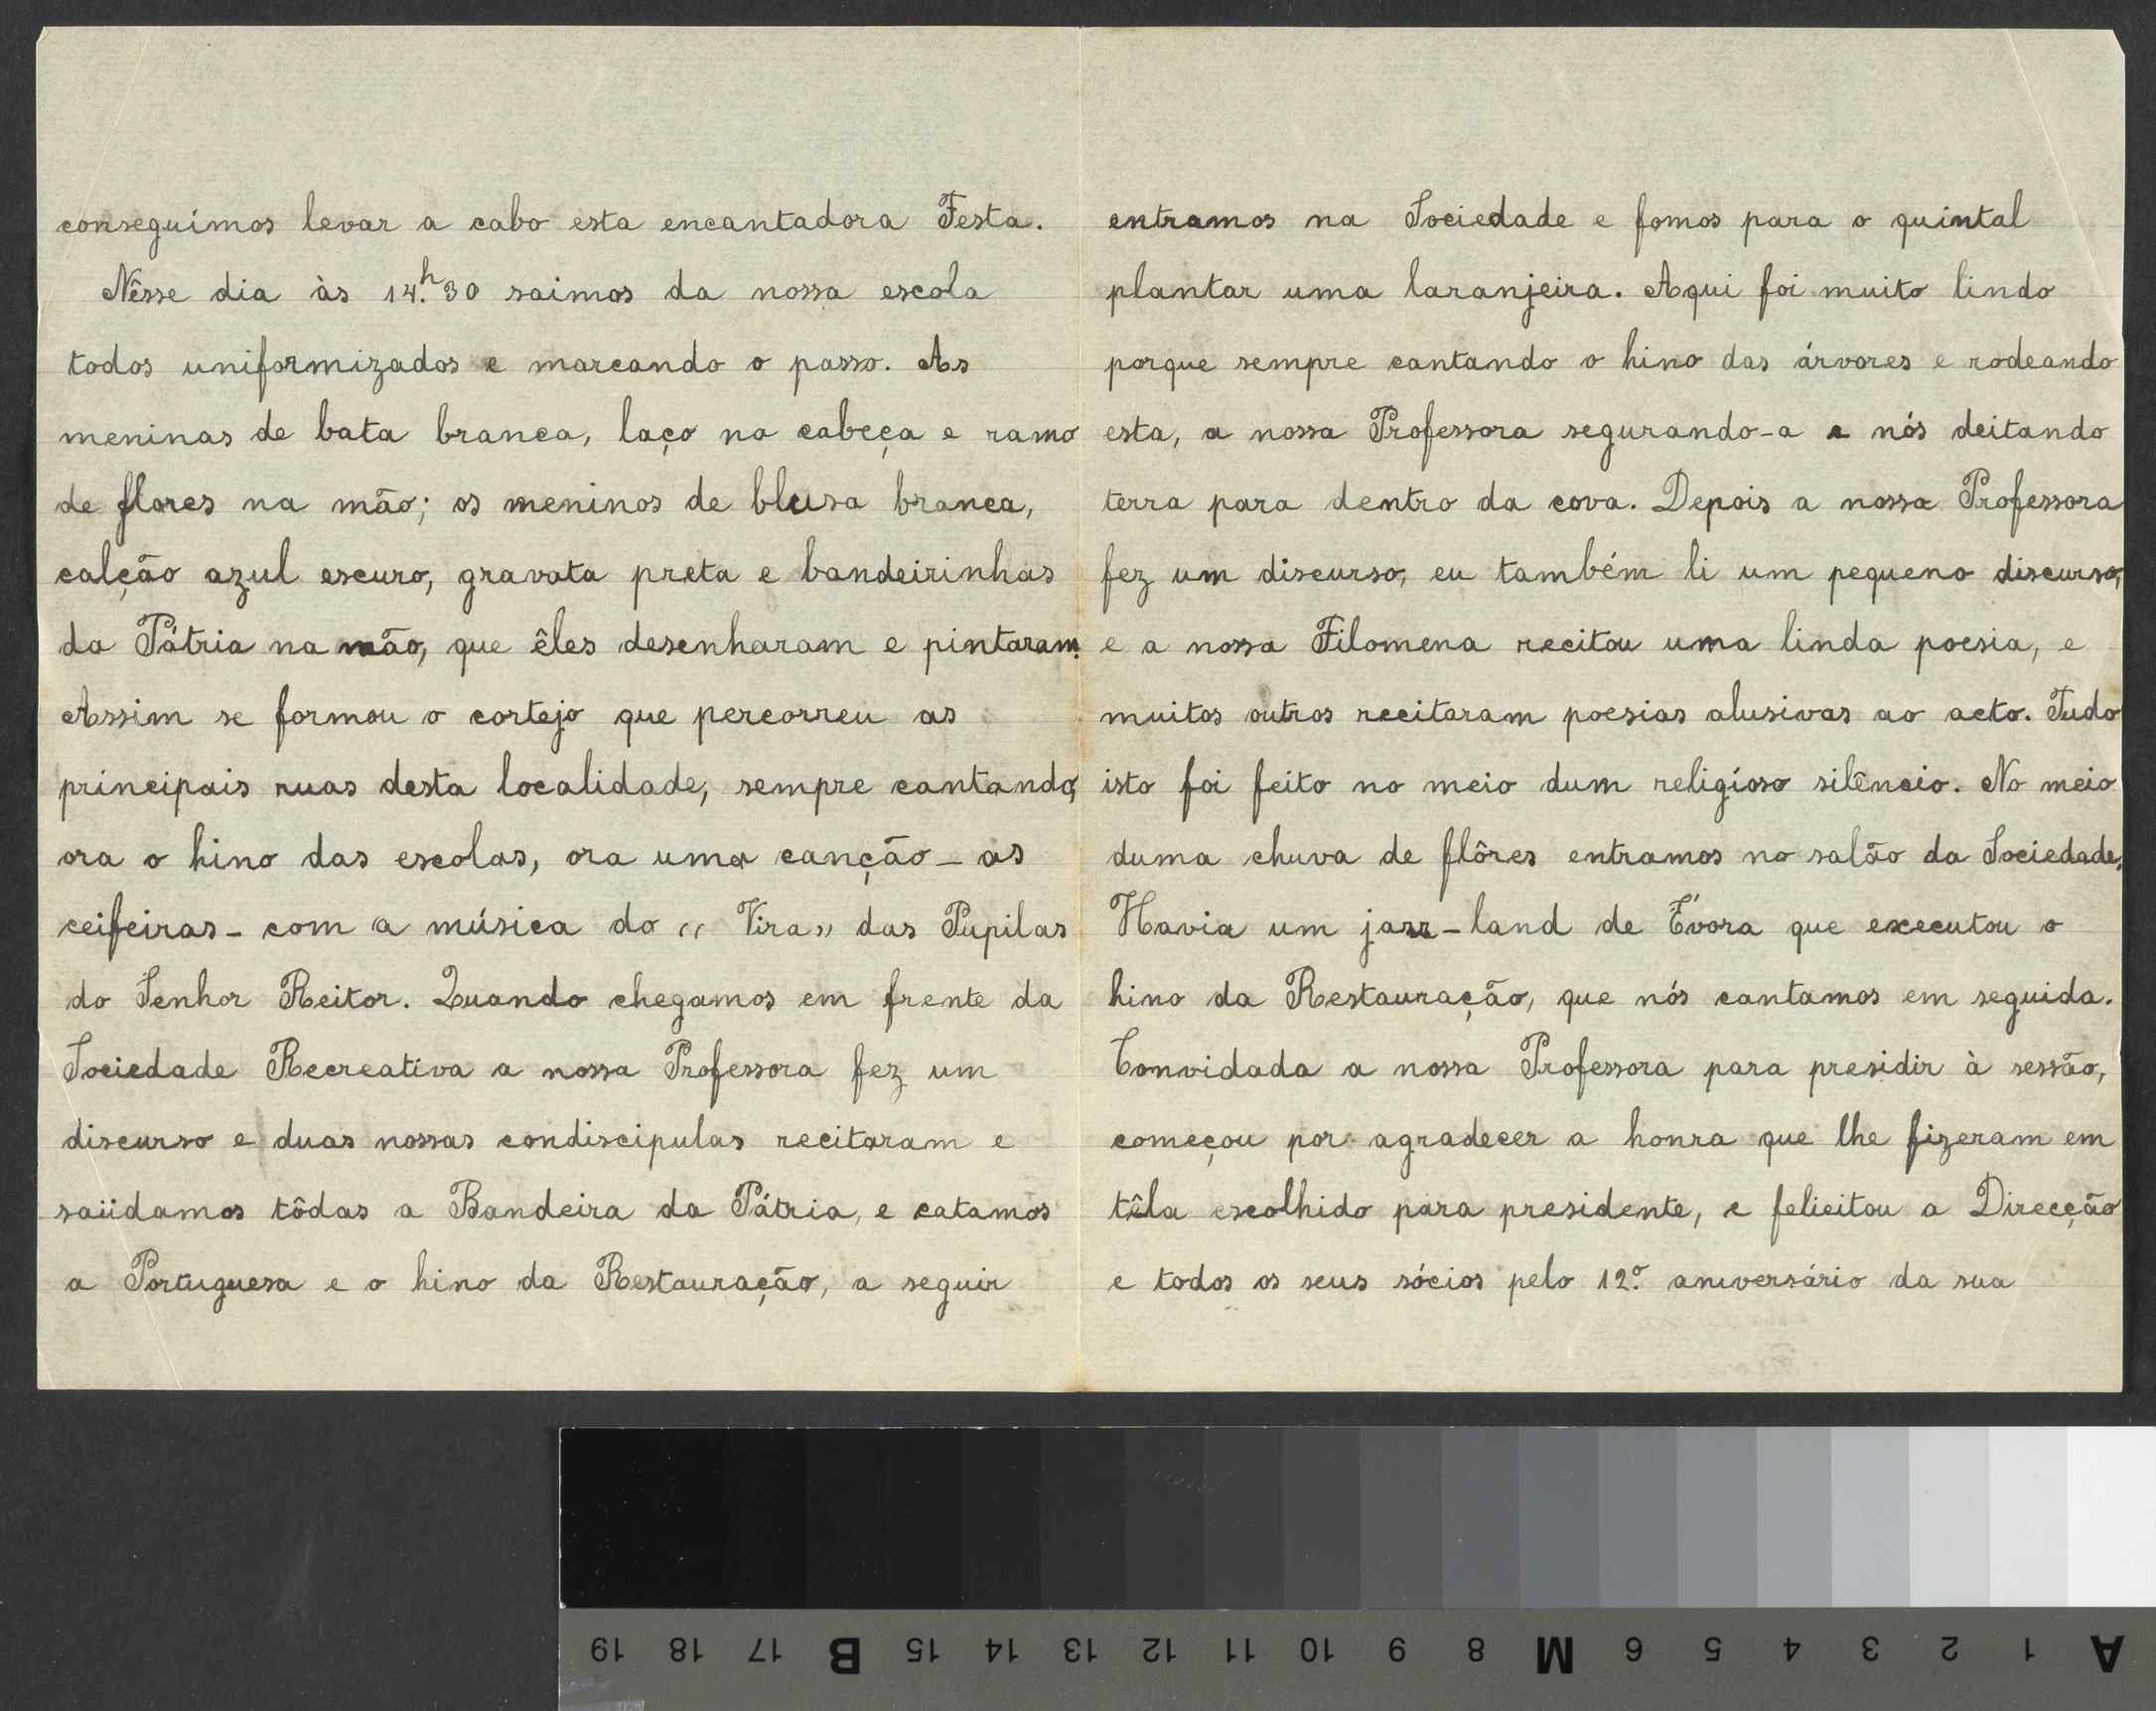 conseguímos levar a cabo esta encantadora Festa.
Nêsse dia às 14.h30 saimos da nossa escola
todos uniformizados e marcando o passo. As
meninas de bata branca, laço na cabeça e ramo
de flores na mão; os meninos de blusa branca,
calção azul escuro, gravata preta e bandeirinhas
da Pátria na mão, que êles desenharam e pintaram.
Assim se formou o cortejo que percorreu as
principais ruas desta localidade, sempre cantando,
ora o hino das escolas, ora uma canção - as
ceifeiras - com a música do « Vira» das Pupilas
do Senhor Reitor. Quando chegamos em frente da
Sociedade Recreativa a nossa Professora fez um
discurso e duas nossas condiscipulas recitaram e
saüdamos tôdas a Bandeira da Pátria, e catamos
a Portuguesa e o hino da Restauração, a seguir
entramos na Sociedade e fomos para o quintal
plantar uma laranjeira. Aqui foi muito lindo
porque sempre cantando o hino das árvores e rodeando
esta, a nossa Professora segurando-a e nós deitando
terra para dentro da cova. Depois a nossa Professora
fez um discurso, eu também li um pequeno discurso,
e a nossa Filomena recitou uma linda poesia, e
muitos outros recitaram poesias alusivas ao acto. Tudo
isto foi feito no meio dum religíoso silêncio. No meio
duma chuva de flôres entramos no salão da Sociedade.
Havia um jazz-land de Évora que executou o
hino da Restauração, que nós cantamos em seguida.
Convidada a nossa Professora para presidir à sessão,
começou por agradecer a honra que lhe fizeram em
têla escolhido para presidente, e felicitou a Direcção
e todos os seus sócios pelo 12.º aniversário da sua
19 18 17 B 15 14 13 12 11 10 9 8 M 6 5 4 3 2 1 A